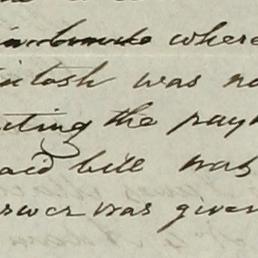 where
intosh was no
ting the pay
said bill was
swer was given